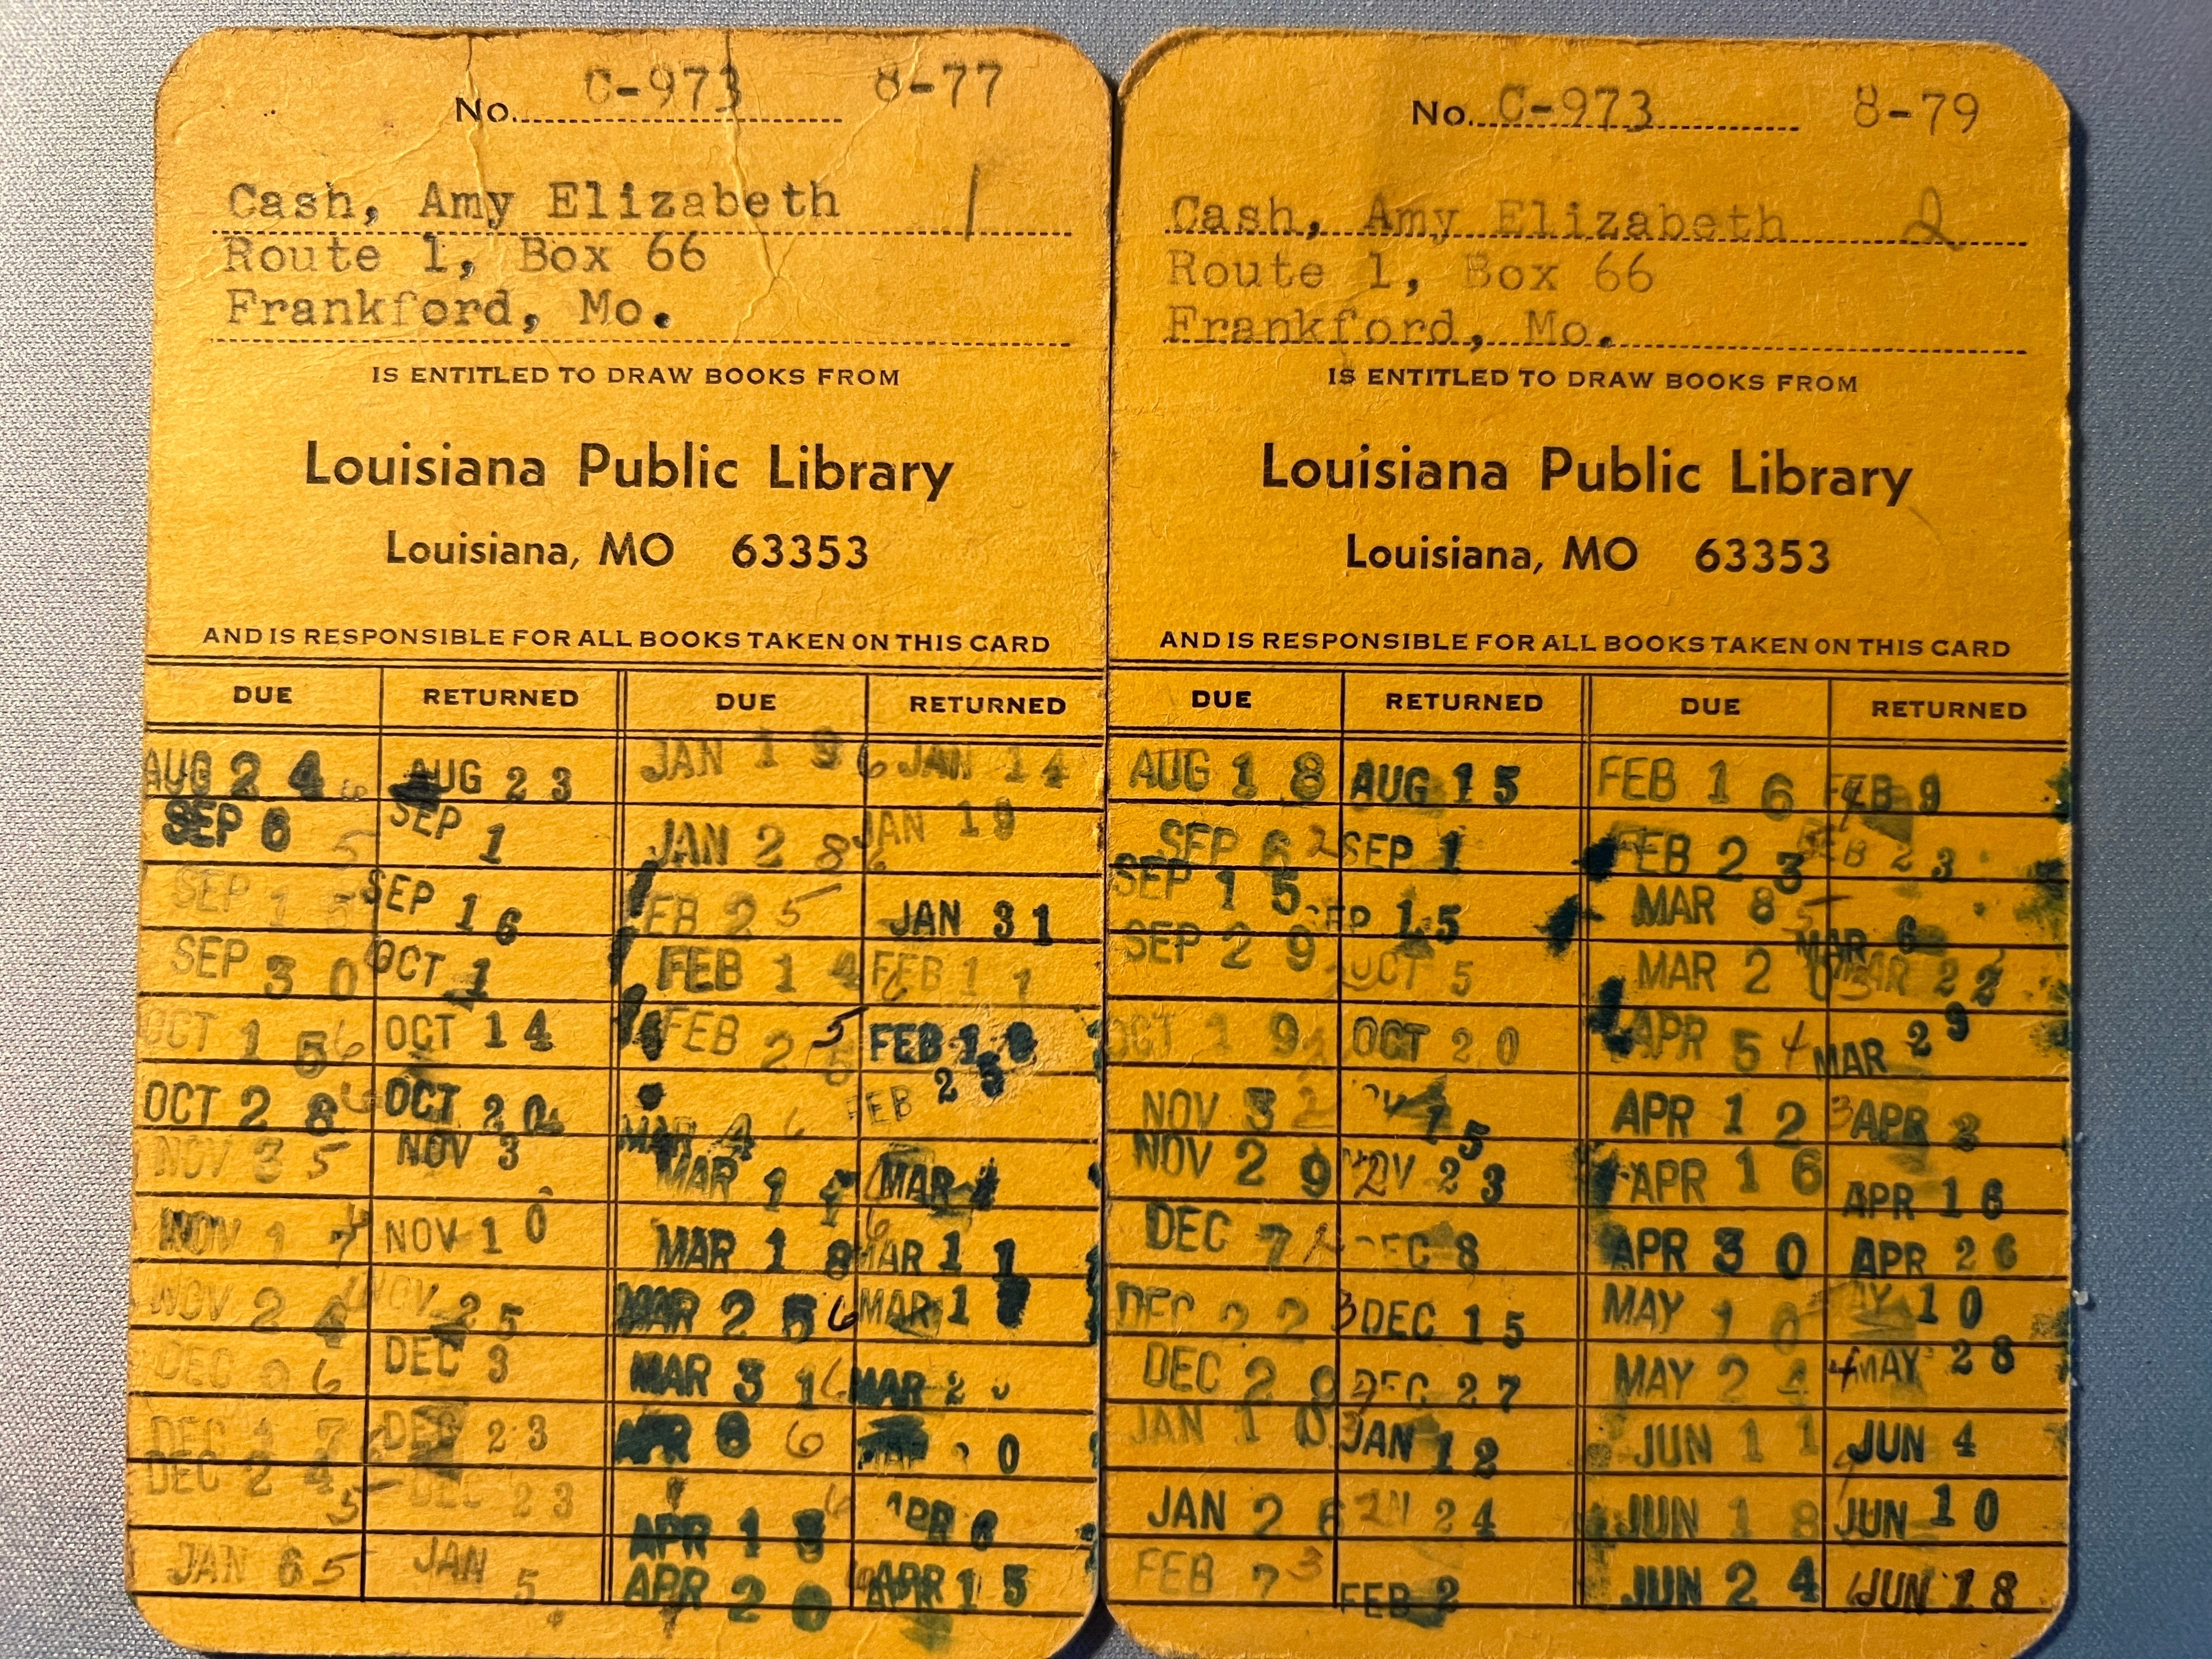 No. C-973 8-77
Cash, Amy Elizabeth 1
Route 1, Box 66
Frankford, Mo.
IS ENTITLED TO DRAW BOOKS FROM
Louisiana Public Library
Louisiana, MO 63353
AND IS RESPONSIBLE FOR ALL BOOKS TAKEN ON THIS CARD
DUE RETURNED DUE RETURNED
AUG 24 AUG 23 JAN 19 6 JAN 14
SEP 6 5 SEP 1 JAN 28 6 JAN 19
SEP 15 SEP 16 FEB 2 5 JAN 31
SEP 30 OCT 1 FEB 14 6 FEB 11
OCT 15 6 OCT 14 FEB 25 5 FEB
OCT 28 6 OCT 20 MAR 4 6 FEB 25
NOV 3 5 NOV 3 MAR 6 MAR 4
NOV 17 6 NOV 10 MAR 18 6 MAR 11
NOV 24 NOV 25 MAR 25 6 MAR
DEC 6 DEC 3 MAR 31 6 MAR
DEC 17 6 DEC 23 APR 6 6
DEC 24 5 DEC 23 APR 6 APR 6
JAN 6 5 JAN 5 APR 20 6 APR 15
No. C-973 8-79
Cash, Amy Elizabeth 2
Route 1, Box 66
Frankford, Mo.
IS ENTITLED TO DRAW BOOKS FROM
Louisiana Public Library
Louisiana, MO 63353
AND IS RESPONSIBLE FOR ALL BOOKS TAKEN ON THIS CARD
DUE RETURNED DUE RETURNED
AUG 18 AUG 15 FEB 16 4 FEB 9
SEP 6 2 SEP 1 FEB 23 FEB 23
SEP 15 SEP 15 MAR 8 5 MAR 6
SEP 29 OCT 5 MAR 20 MAR 22
OCT 19 2 OCT 20 APR 5 4 MAR 29
NOV 3 2 NOV 15 APR 12 3 APR
NOV 29 2 NOV 23 APR 16 APR 16
DEC 7 2 DEC 8 APR 30 APR 26
DEC 22 3 DEC 15 MAY 10 MAY 10
DEC 29 DEC 27 MAY 24 4 MAY 28
JAN 10 JAN 12 JUN 11 4 JUN 4
JAN 26 JAN 24 JUN 18 JUN 10
FEB 7 3 FEB 2 JUN 24 JUN 18